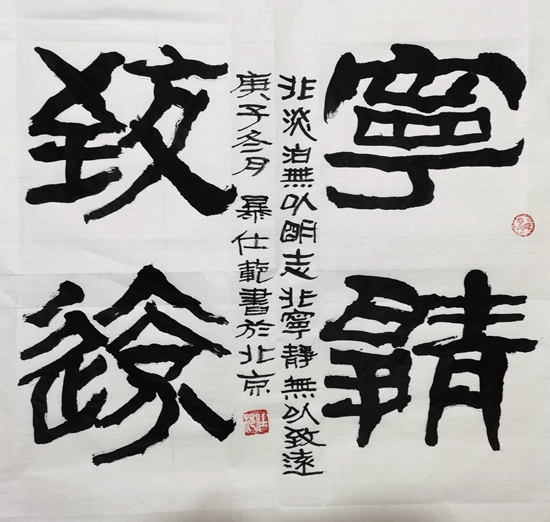 寧靜
非淡泊無以明志非寧靜無以致遠
庚子冬月 暴仕範書於北京
致遠